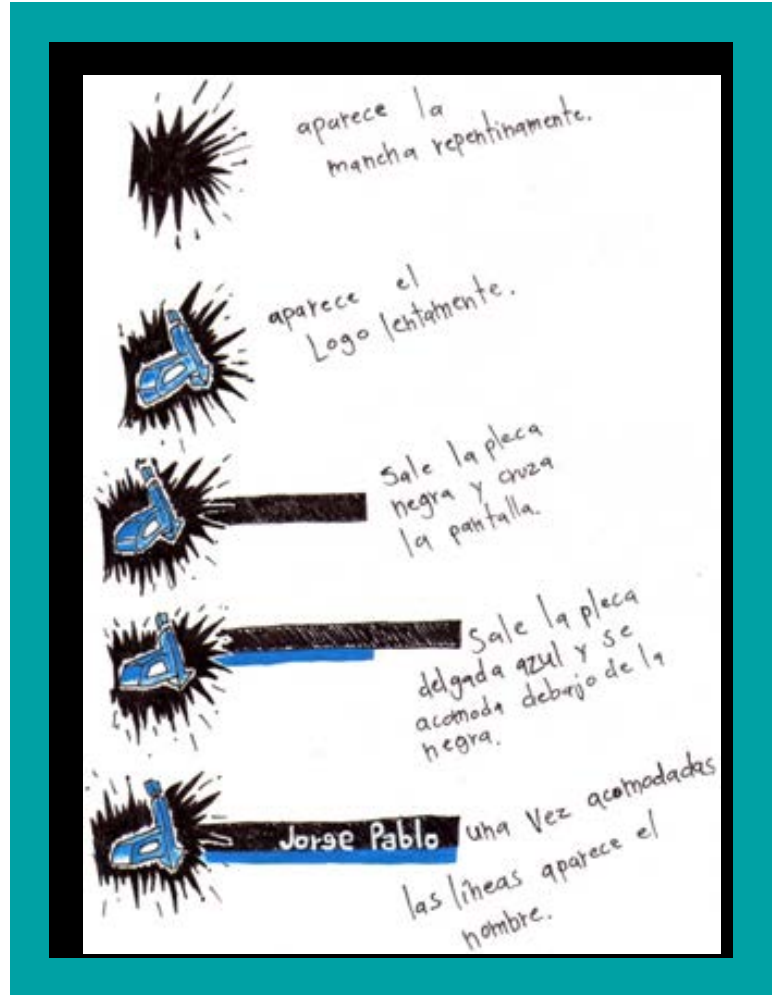 aparece la
mancha repentinamente.
aparece el
Logo lentamente.
Sale la pleca
negra y cruza
la pantalla.
Sale la pleca
delgada azul y se
acomoda debajo de la
negra.
Jorge Pablo
una vez acomodadas
las líneas aparece el
nombre.